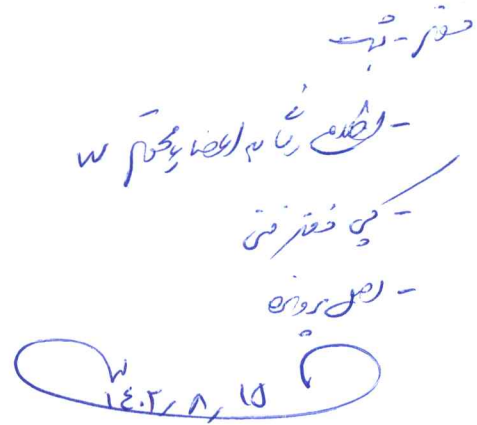 دفتر - ثبت
- اطلاع رسانی به اعضای محترم
- کپی دفتر فنی
- اصل پرونده
۱۴۰۲/۸/۱۵